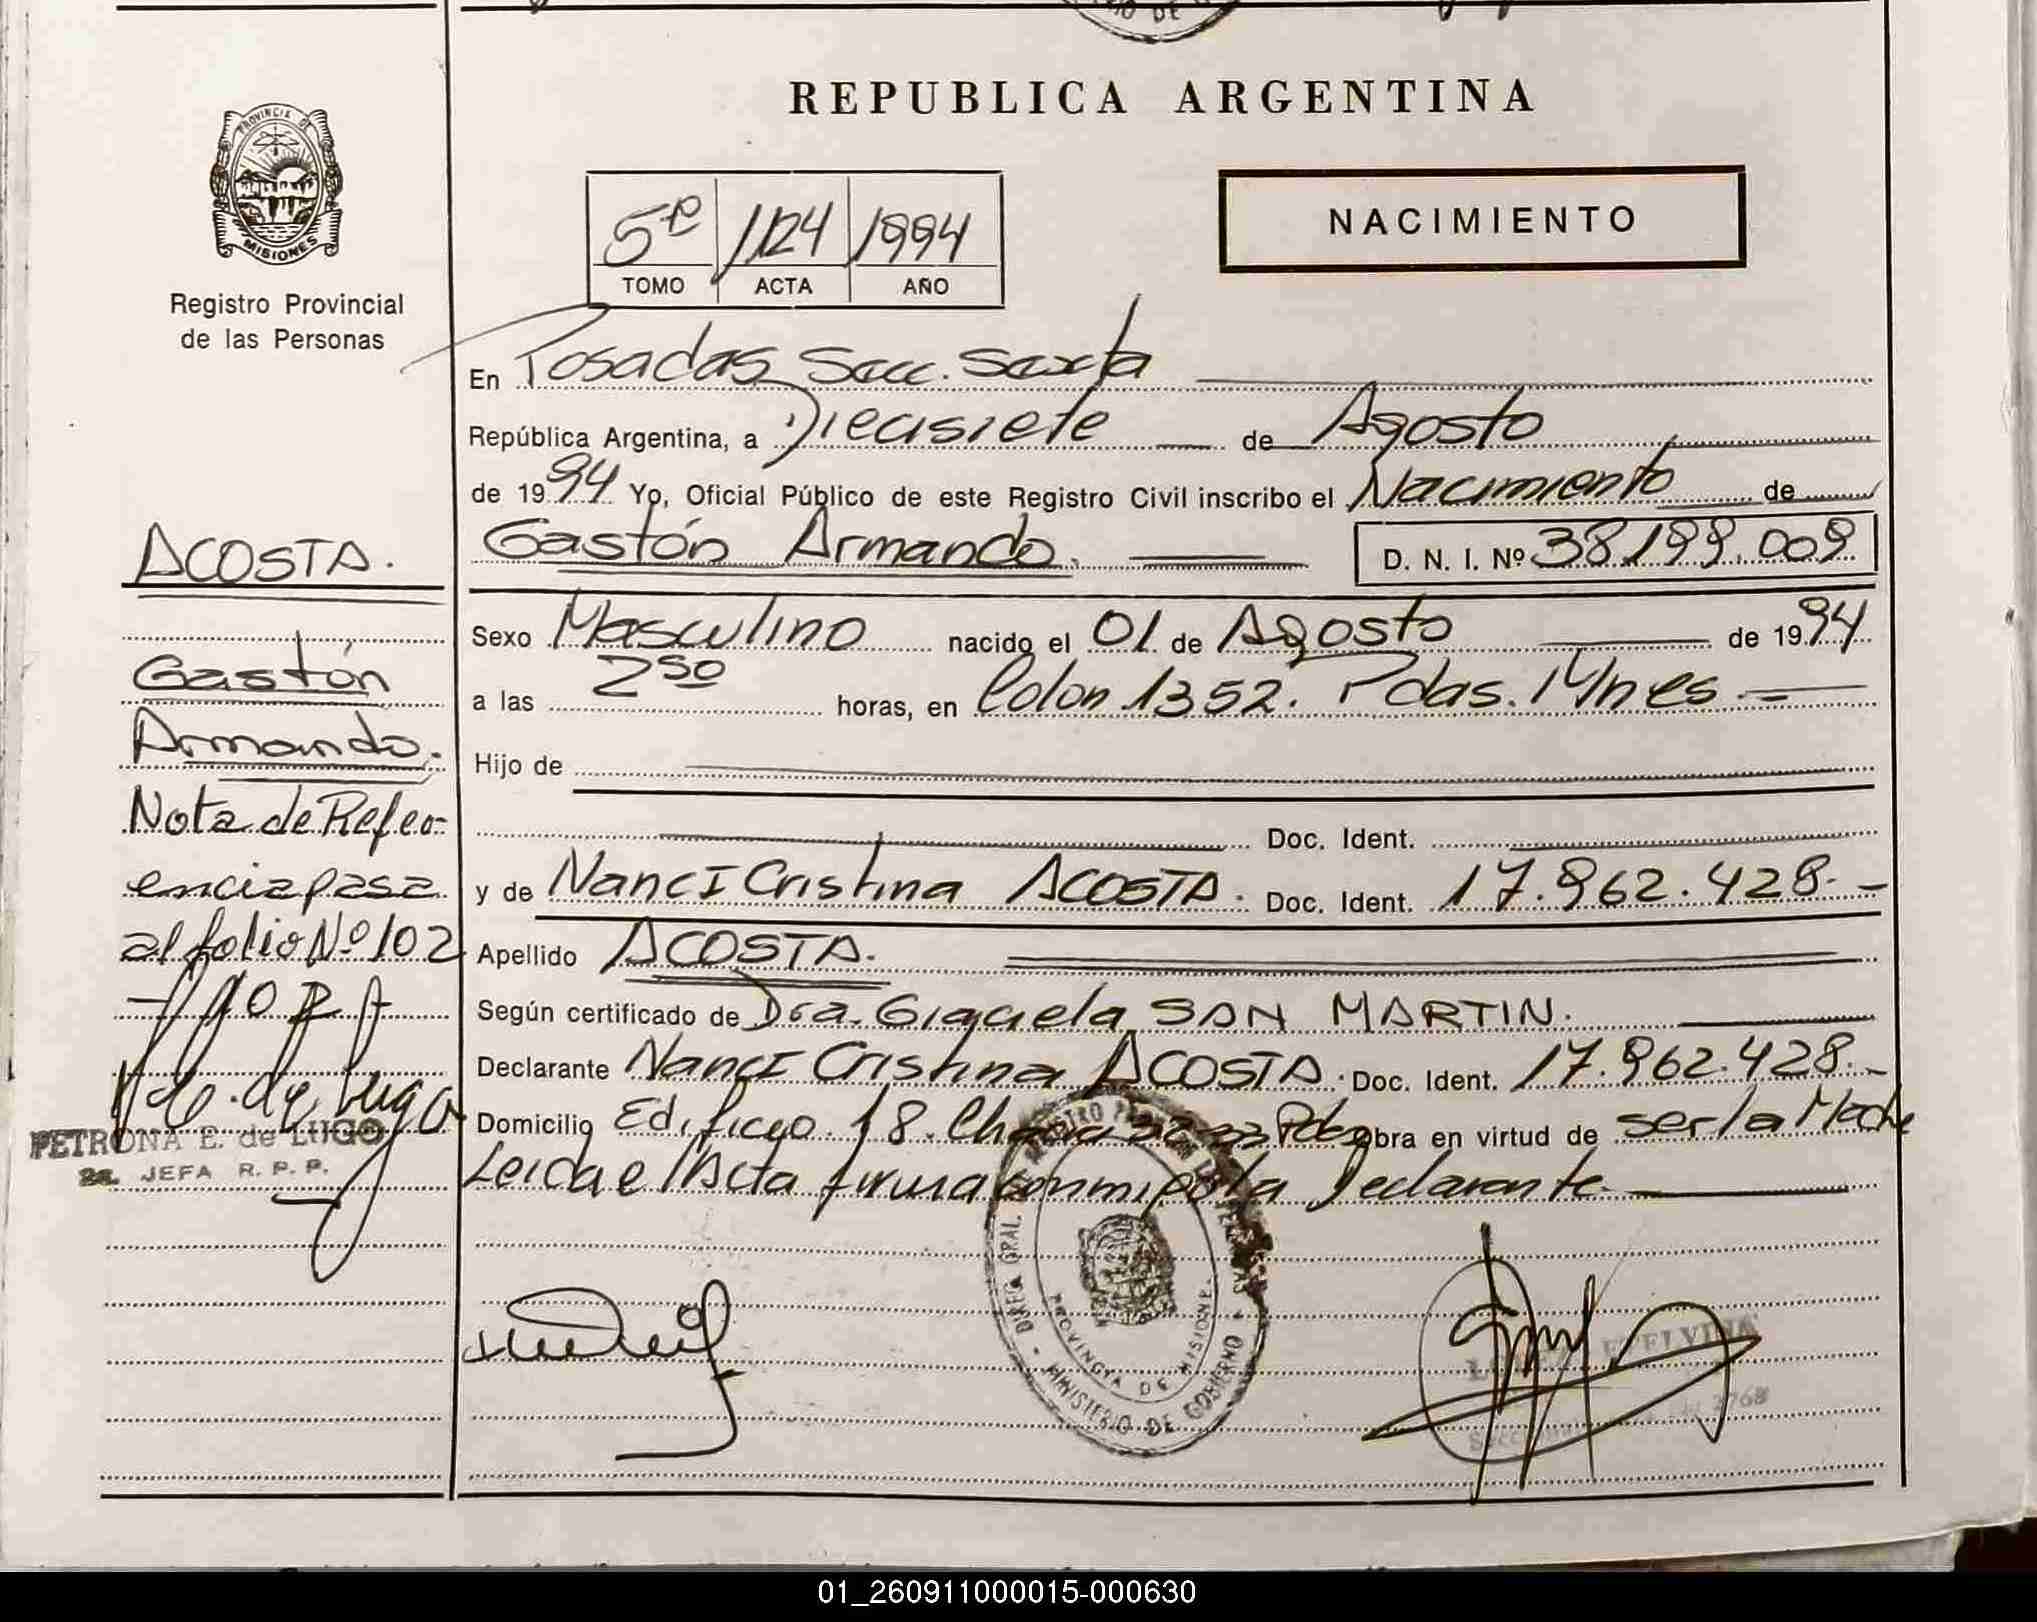 REPUBLICA ARGENTINA
PROVINCIA DE
MISIONES
Registro Provincial
de las Personas
5º 1124 1994
TOMO ACTA AÑO
NACIMIENTO
En Posadas Secc. Sexta
República Argentina, a Diecisiete de Agosto
de 1994 Yo, Oficial Público de este Registro Civil inscribo el Nacimiento de
Gastón Armando. D. N. I. Nº 38.199.009
Sexo Masculino nacido el 01 de Agosto de 1994
a las 2 50 horas, en Colon 1352. Pdas. Mnes
Hijo de
Doc. Ident.
y de Nanci Cristina ACOSTA. Doc. Ident. 17.962.428.-
Apellido ACOSTA.
Según certificado de Dra. Graciela SAN MARTIN.
Declarante Nanci Cristina ACOSTA. Doc. Ident. 17.962.428.-
Domicilio Edificio 18. obra en virtud de ser la Madre
Leida el Acta firma conmigo la Declarante
ACOSTA.
Gastón
Armando.
Nota de Refer
encia pasa
al folio Nº 102
PETRONA E. de LUGO
2a. JEFA R. P. P.
PROVINCIA DE MISIONES
MINISTERIO DE GOBIERNO
ETELVINA
01_260911000015-000630